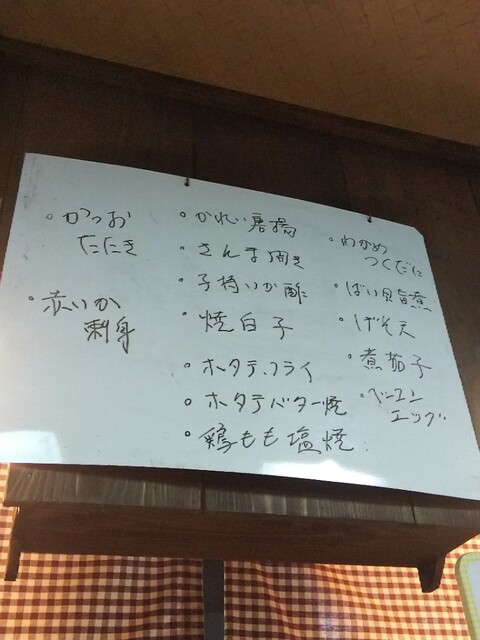 ・かつお
たたき
・赤いか
刺身
・かれい唐揚
・さんま開き
・子持いか酢
・焼白子
・ホタテフライ
・ホタテバター焼
・鶏もも塩焼
・わかめ
つくだに
・ばい貝旨煮
・げそ天
・煮茄子
・ベーコン
エッグ